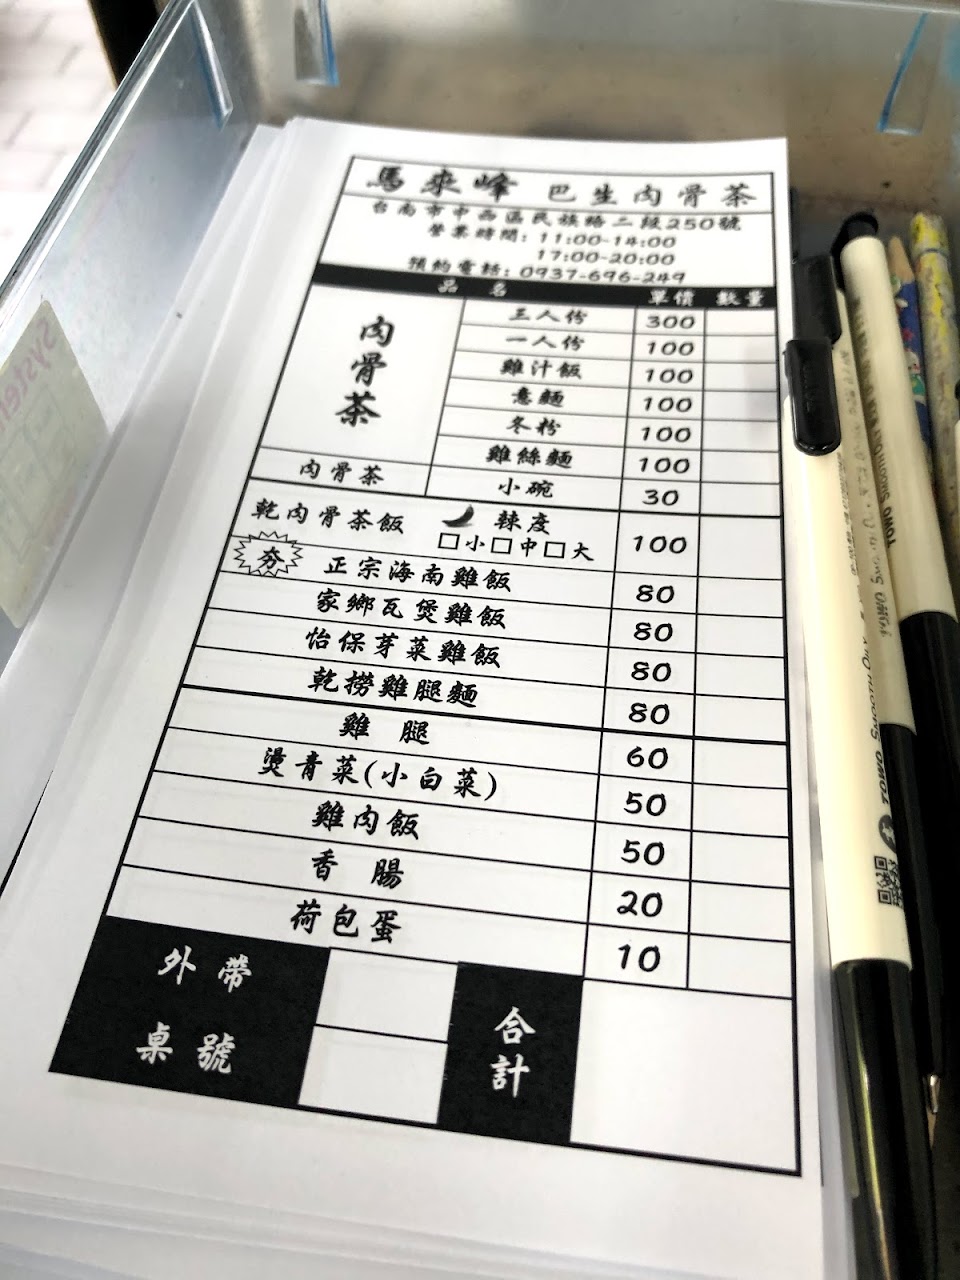 馬來峰 巴生肉骨茶
台南市中西區民族路二段250號
營業時間: 11:00-14:00
17:00-20:00
預約電話: 0937-696-249
品 名 單價 數量
肉骨茶
三人份 300
一人份 100
雞汁飯 100
意麵 100
冬粉 100
雞絲麵 100
肉骨茶 小碗 30
乾肉骨茶飯 辣度 □小□中□大 100
夯 正宗海南雞飯 80
家鄉瓦煲雞飯 80
怡保芽菜雞飯 80
乾撈雞腿麵 80
雞 腿 60
燙青菜(小白菜) 50
雞肉飯 50
香 腸 20
荷包蛋 10
外帶
桌號
合計
TOMO